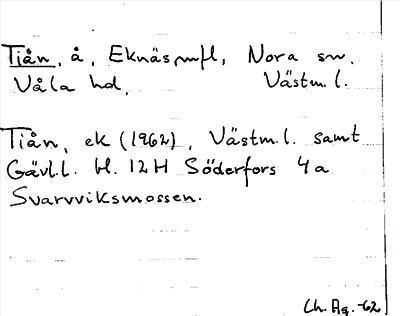 Tiån, å, Eknäs mfl, Nora sn,
Våla hd, Västm. l.
Tiån, ek (1962), Västm. l. samt
Gävl.l. bl. 12H Söderfors 4a
Svarvviksmossen.
Ch. Ag. -62